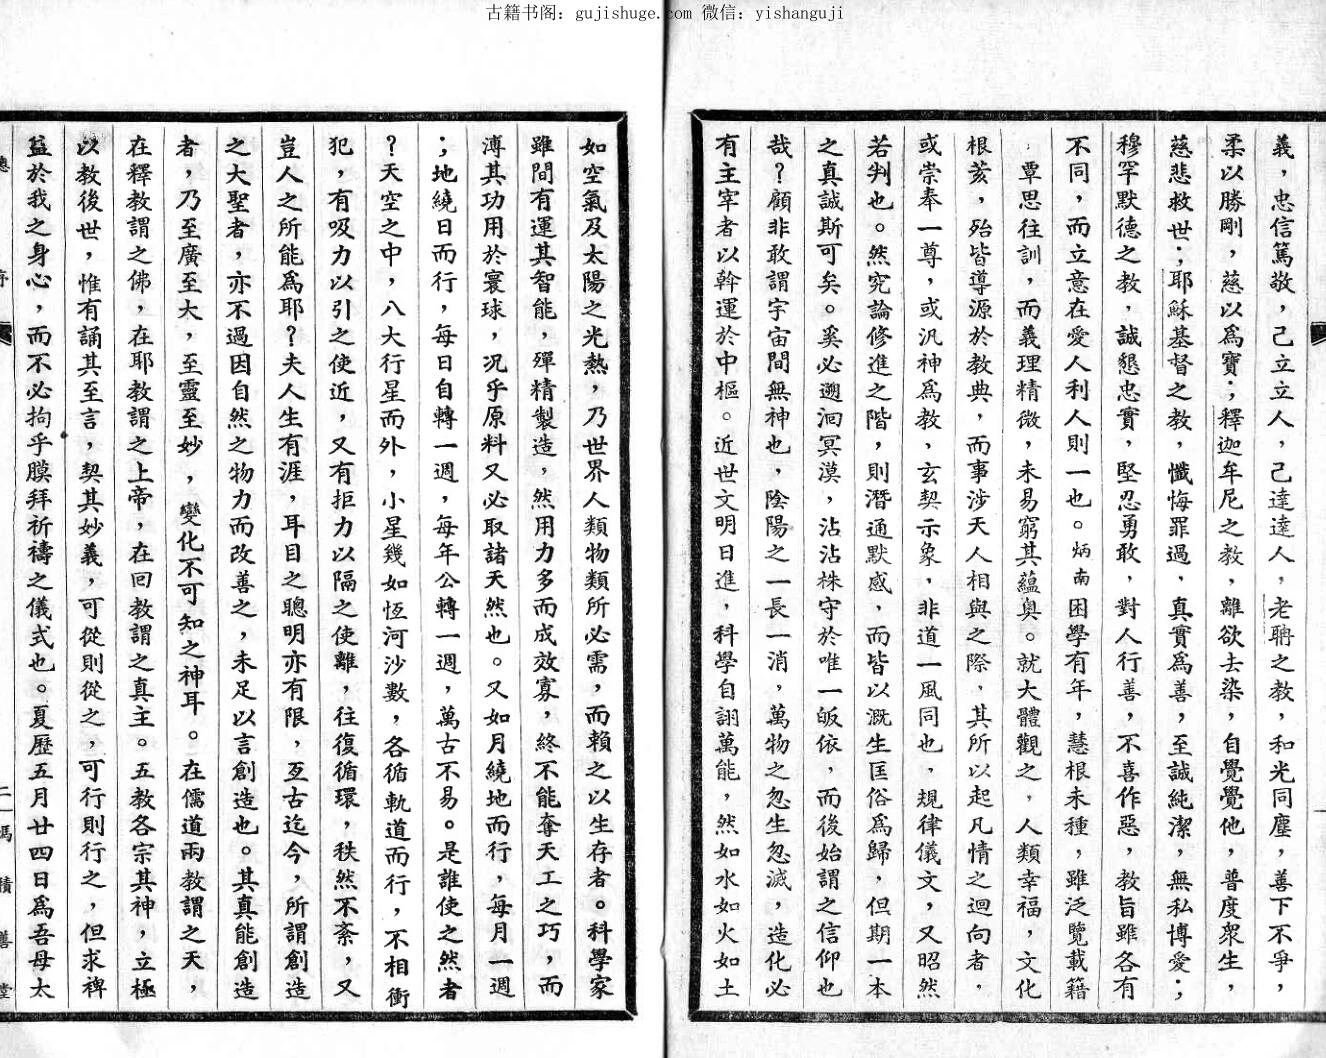 古籍书阁：gujishuge.com 微信：yishanguji
義，忠信篤敬，己立立人，己達達人，老聃之教，和光同塵，善下不爭，
柔以勝剛，慈以爲寶；釋迦牟尼之教，離欲去染，自覺覺他，普度衆生，
慈悲救世；耶穌基督之教，懺悔罪過，真實爲善，至誠純潔，無私博愛；
穆罕默德之教，誠懇忠實，堅忍勇敢，對人行善，不喜作惡，教旨雖各有
不同，而立意在愛人利人則一也。炳南困學有年，慧根未種，雖泛覽載籍
，覃思往訓，而義理精微，未易窮其蘊奧。就大體觀之，人類幸福，文化
根荄，殆皆導源於教典，而事涉天人相與之際，其所以起凡情之迴向者，
或崇奉一尊，或汎神爲教，玄契示象，非道一風同也，規律儀文，又昭然
若判也。然究論修進之階，則潛通默感，而皆以溉生匡俗爲歸，但期一本
之真誠斯可矣。奚必遡洄冥漠，沾沾株守於唯一皈依，而後始謂之信仰也
哉？顧非敢謂宇宙間無神也，陰陽之一長一消，萬物之忽生忽滅，造化必
有主宰者以斡運於中樞。近世文明日進，科學自詡萬能，然如水如火如土
如空氣及太陽之光熱，乃世界人類物類所必需，而賴之以生存者。科學家
雖間有運其智能，殫精製造，然用力多而成效寡，終不能奪天工之巧，而
溥其功用於寰球，况乎原料又必取諸天然也。又如月繞地而行，每月一週
；地繞日而行，每日自轉一週，每年公轉一週，萬古不易。是誰使之然者
？天空之中，八大行星而外，小星幾如恆河沙數，各循軌道而行，不相衝
犯，有吸力以引之使近，又有拒力以隔之使離，往復循環，秩然不紊，又
豈人之所能爲耶？夫人生有涯，耳目之聰明亦有限，亙古迄今，所謂創造
之大聖者，亦不過因自然之物力而改善之，未足以言創造也。其真能創造
者，乃至廣至大，至靈至妙，變化不可知之神耳。在儒道兩教謂之天，
在釋教謂之佛，在耶教謂之上帝，在回教謂之真主。五教各宗其神，立極
以教後世，惟有誦其至言，契其妙義，可從則從之，可行則行之，但求裨
益於我之身心，而不必拘乎膜拜祈禱之儀式也。夏歷五月廿四日爲吾母太